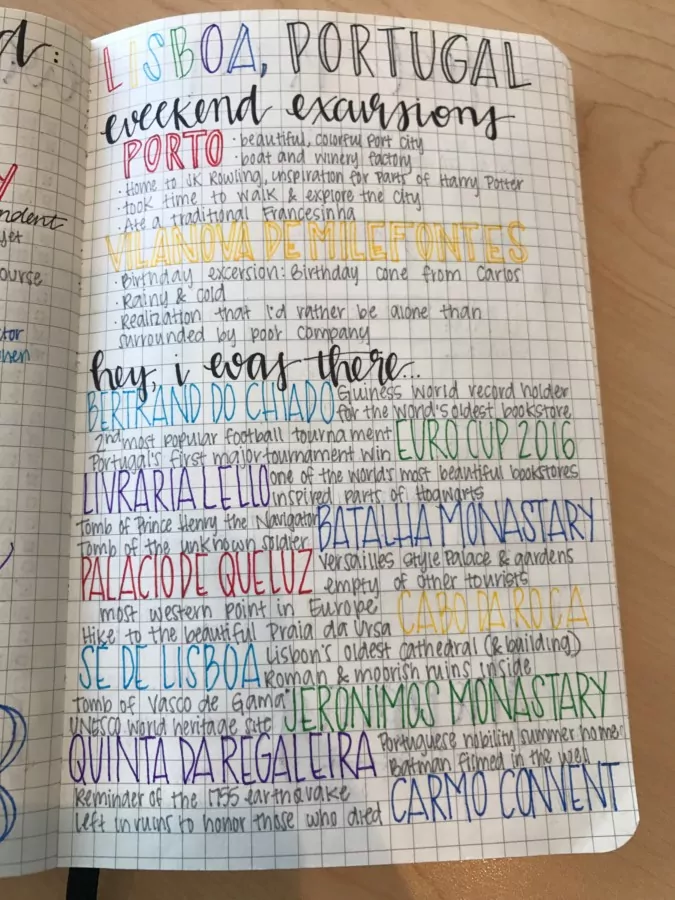 d:
y
ndent
yet
ourse
tor
hen
LISBOA, PORTUGAL
weekend excursions
PORTO · beautiful, colorful port city
· boat and winery factory
· Home to JK Rowling, inspiration for parts of Harry Potter
· took time to walk & explore the city
· Ate a traditional Francesinha
VILANOVA DE MILEFONTES
· Birthday excersion: Birthday cone from Carlos
· Rainy & cold
· Realization that I'd rather be alone than
surrounded by poor company
hey, i was there...
BERTRAND DO CHIADO Guiness world record holder
for the world's oldest bookstore
2nd most popular football tournament EURO CUP 2016
Portugal's first major tournament win
LIVRARIA LELLO one of the world's most beautiful bookstores
inspired parts of Hogwarts
Tomb of Prince Henry the Navigator BATALHA MONASTARY
Tomb of the unknown soldier
PALACIO DE QUELUZ Versailles style Palace & gardens
empty of other tourists
most western point in Europe CABO DA ROCA
Hike to the beautiful Praia da Ursa
SÉ DE LISBOA Lisbon's oldest cathedral (& building)
Roman & moorish ruins inside
tomb of Vasco de Gama JERONIMOS MONASTARY
UNESCO World heritage site
QUINTA DA REGALEIRA Portuguese nobility summer home
Batman filmed in the well
Reminder of the 1755 earthquake CARMO CONVENT
left in ruins to honor those who died